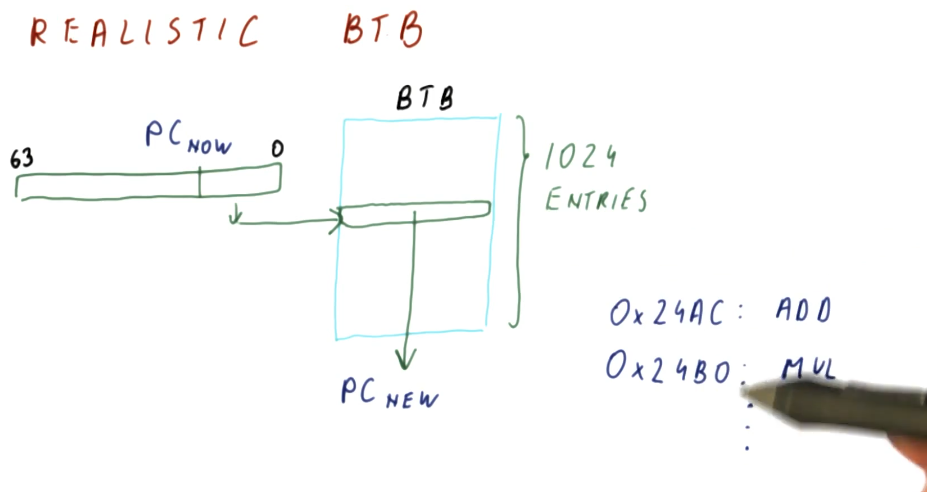 REALISTIC BTB
BTB
PC NOW
63
0
1024
ENTRIES
0x24AC: ADD
0x24B0: MUL
PC NEW